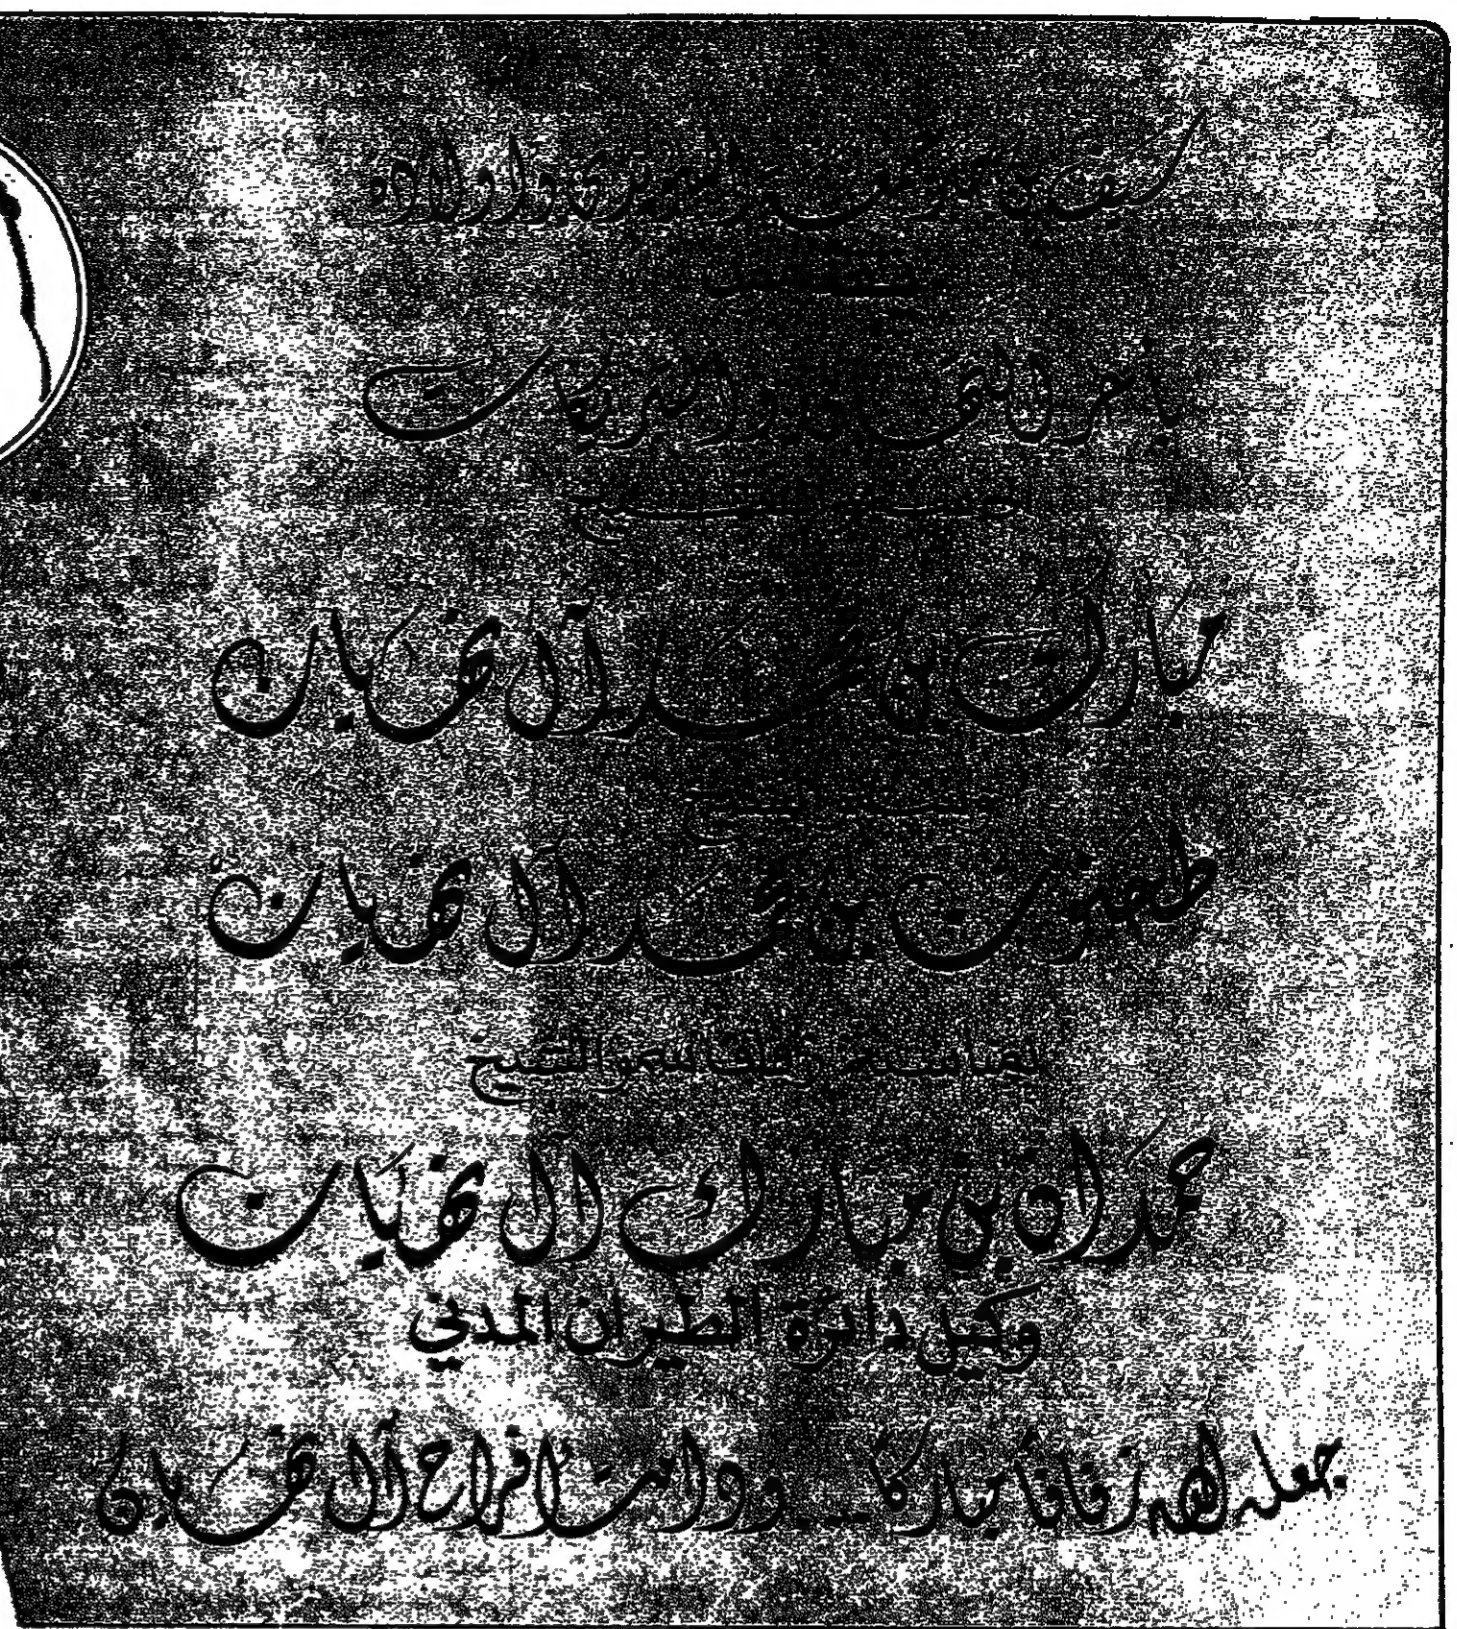 سيف بن محمد وأولاده
بأحر التهاني والتبريكات
الشيخ
مبارك بن محمد آل نهيان
الشيخ
طحنون بن محمد آل نهيان
بمناسبة زفاف سمو الشيخ
حمدان بن مبارك آل نهيان
وكيل دائرة الطيران المدني
جعله الله زفافاً مباركا... ودامت افراح آل نهيان